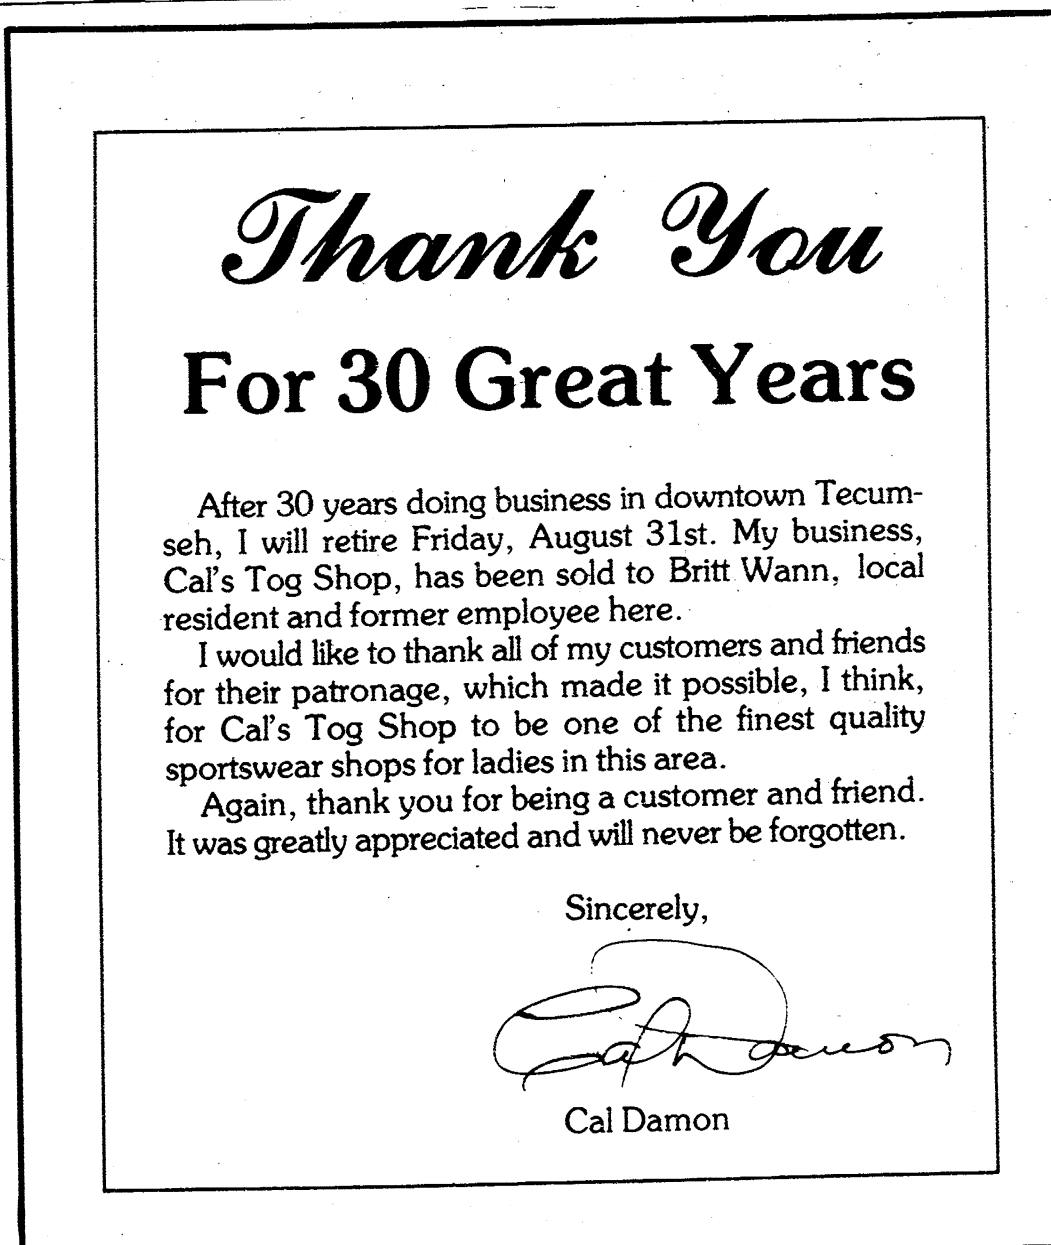 Thank You
For 30 Great Years
After 30 years doing business in downtown Tecum-
seh, I will retire Friday, August 31st. My business,
Cal's Tog Shop, has been sold to Britt Wann, local
resident and former employee here.
I would like to thank all of my customers and friends
for their patronage, which made it possible, I think,
for Cal's Tog Shop to be one of the finest quality
sportswear shops for ladies in this area.
Again, thank you for being a customer and friend.
It was greatly appreciated and will never be forgotten.
Sincerely,
Cal Damon
Cal Damon